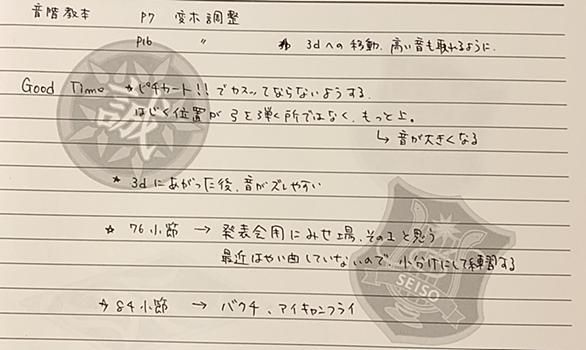 音階教本 P7 変ホ調整
P16 〃 ☆ 3dへの移動、高い音も取れるように.
Good Time ☆ピチカート!!でカスッてならないようする.
はじく位置が弓を弾く所ではなく、もっと上。
↳ 音が大きくなる
誠
☆ 3dにあがった後、音がズレやすい
☆ 76小節 → 発表会用にみせ場、その1と思う
最近はやい曲していないので、小分けにして練習する
SEISO
☆ 84小節 → バクチ、アイキャンフライ